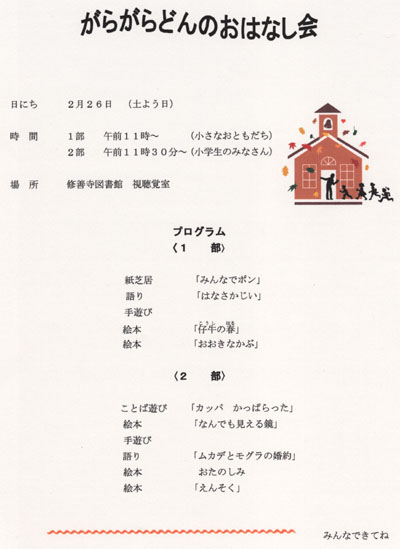 がらがらどんのおはなし会
日にち　２月２６日　（土よう日）
時　間　１部　午前１１時～　（小さなおともだち）
２部　午前１１時３０分～（小学生のみなさん）
場　所　修善寺図書館　視聴覚室
プログラム
〈１　部〉
紙芝居　「みんなでポン」
語り　「はなさかじい」
手遊び
絵本　「仔牛の春」
絵本　「おおきなかぶ」
〈２　部〉
ことば遊び　「カッパ　かっぱらった」
絵本　「なんでも見える鏡」
手遊び
語り　「ムカデとモグラの婚約」
絵本　おたのしみ
絵本　「えんそく」
みんなできてね